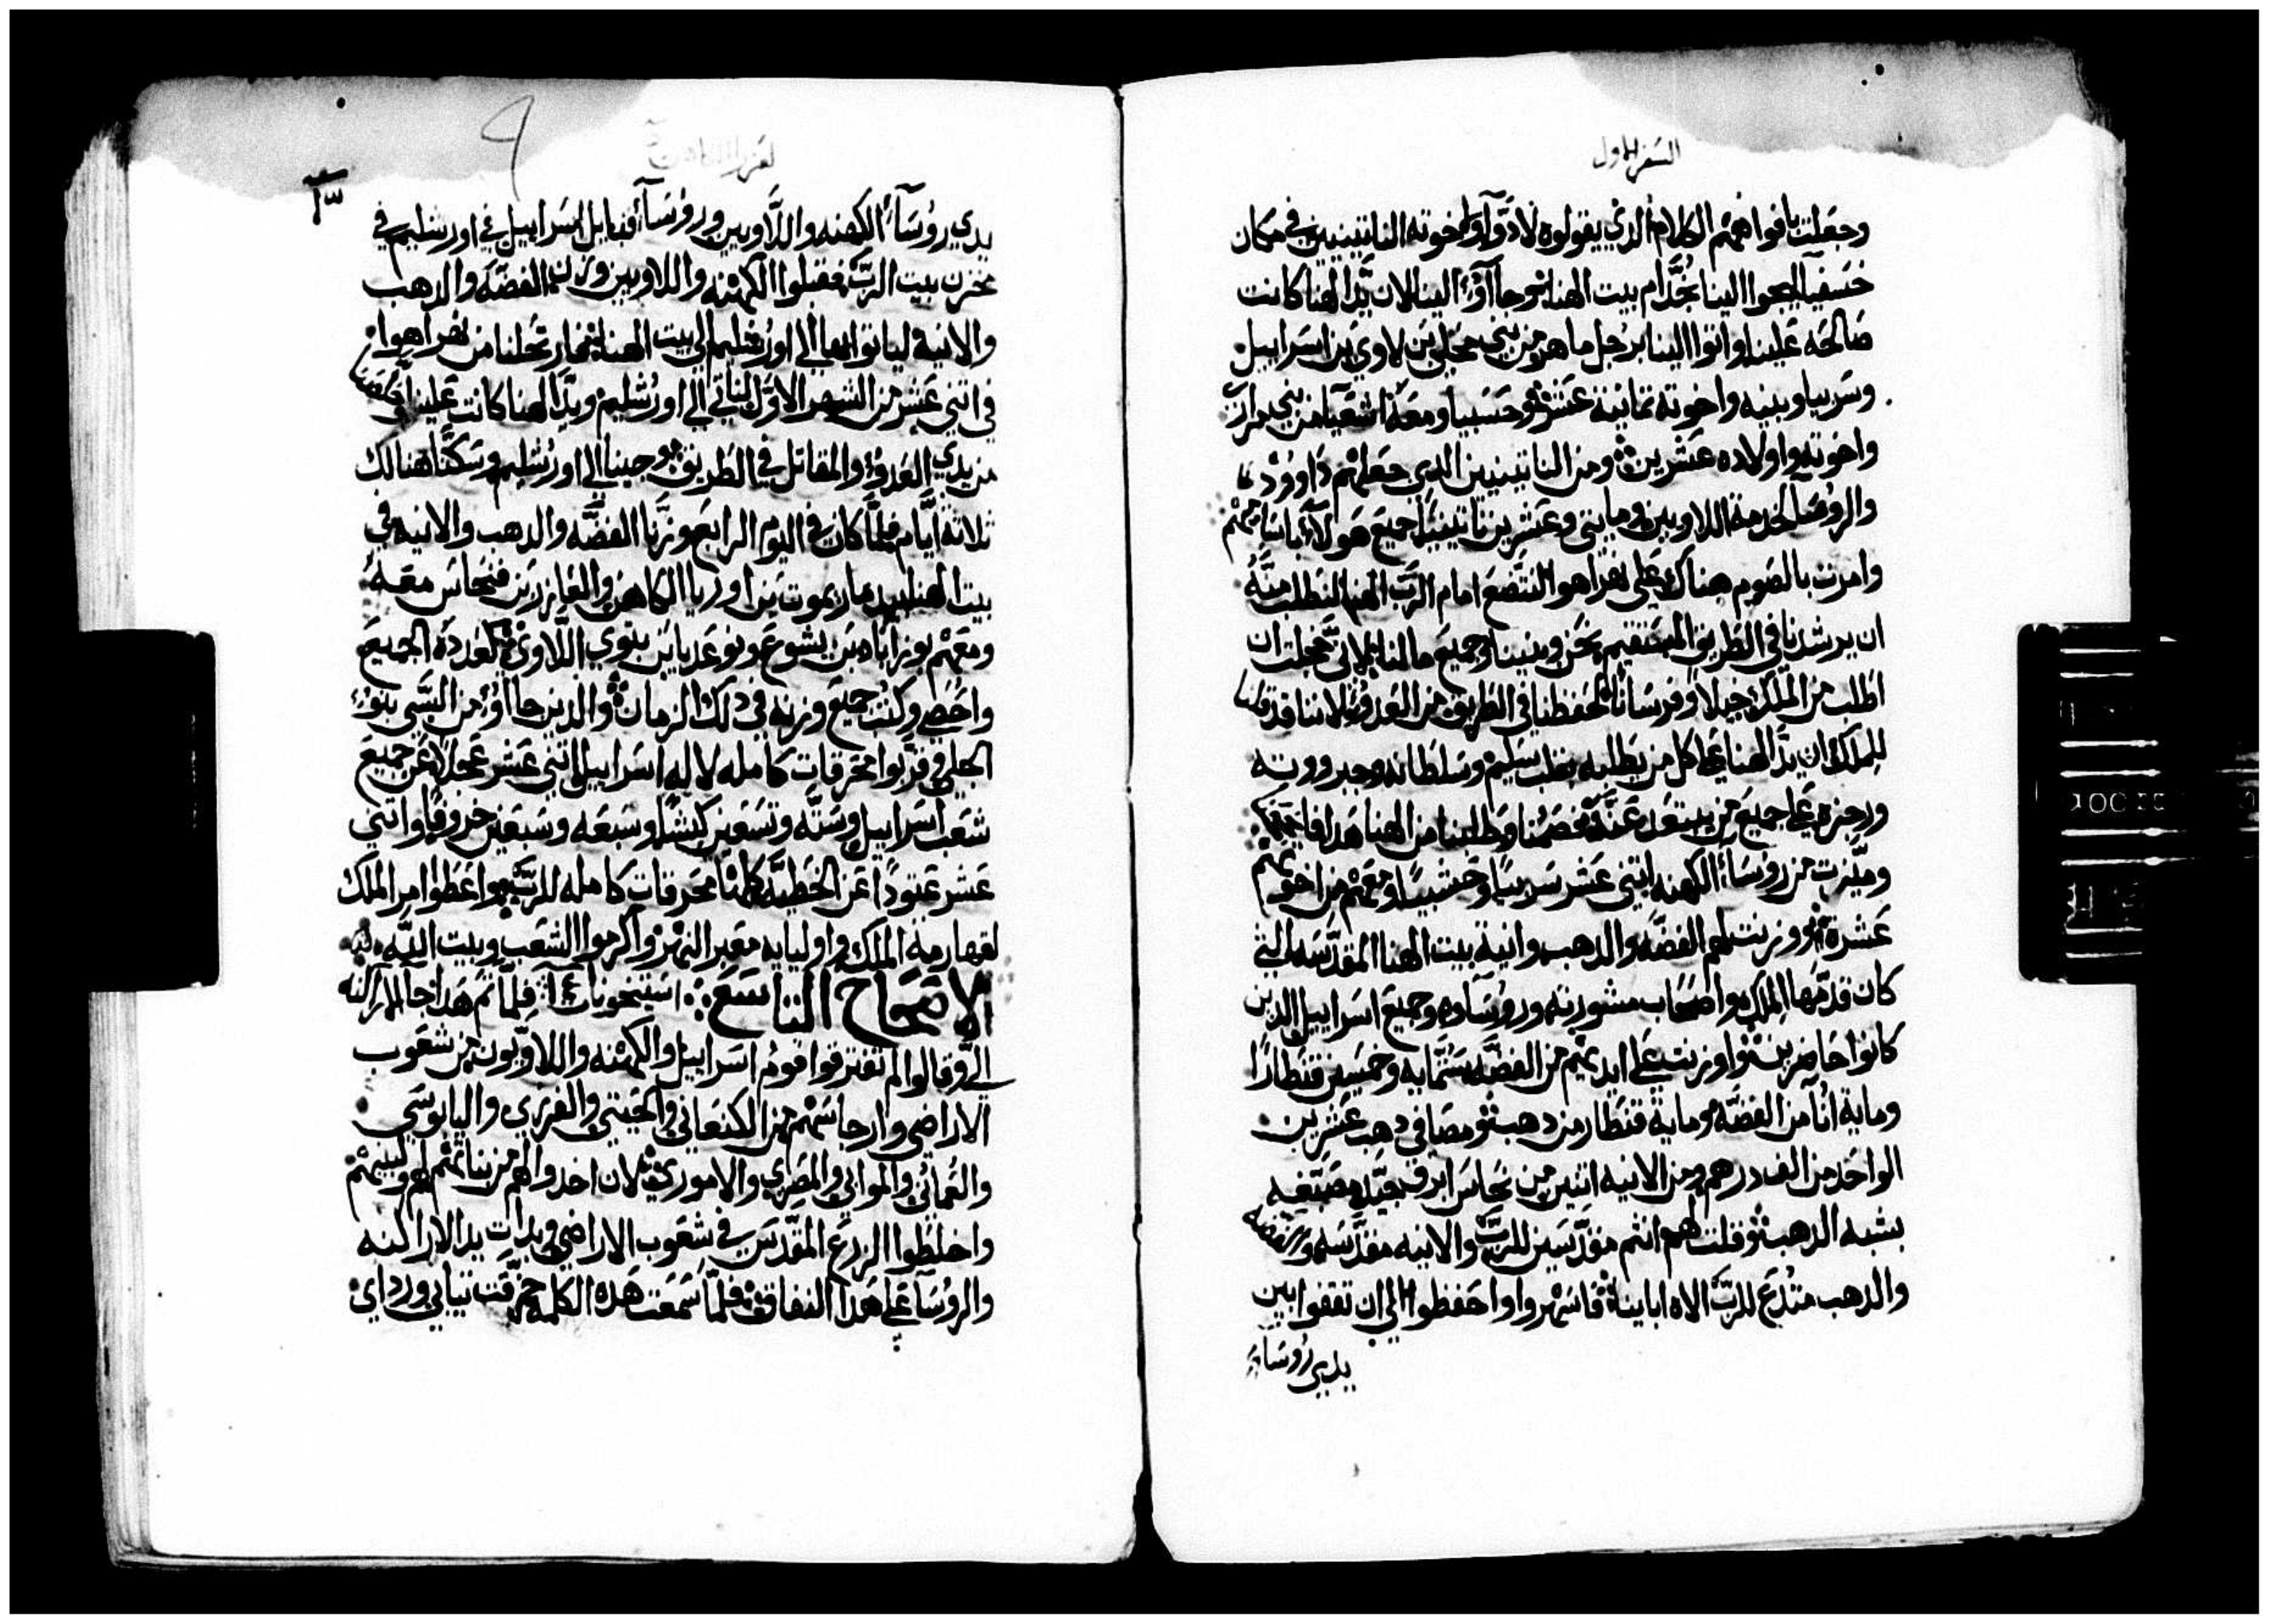 السفر الاول
وجعلت بافواههم الكلام الذي يقولوه لادوا واخوته الناتينيين في مكان
خسفيا ليجوا الينا بخدام بيت الهنا فوجاآوا الينا لان يد الهنا كانت
صالحه علينا واتوا الينا برجل ماهر من بني محلي بن لاوي بن اسراييل
وسربيا وبنيه واخوته تمانية عشر وحسبيا ومعه اشعيا من بني مراري
واخوته واولاده عشرين ومن الناتينيين الدي جعلهم داوود
والروسا لخدمة اللاويين ومايتي وعشرين ناتينيا جميع هولآء باسمايهم
وامرت بالصوم هناك على نهر اهوا لنتضع امام الرب الهنا لنطلب منه
ان يرشدنا في الطريق المستقيم نحن وبنينا وجميع مالنا لاني خجلت ان
اطلب من الملك خيلا وفرسانا لتحفظنا في الطريق من العدو لاننا قد قلنا
للملك ان يد الهنا على كل من يطلبه بقلب سليم وسلطانه وجبرووته
ورجزه على جميع من يبتعد عنه فصمنا وطلبنا من الهنا هدا
وميزت من روسآء الكهنه اتني عشر سربيا وحشبيا ومعهم من اخوتهم
عشرة ووزنت لهم الفضه والدهب وانية بيت الهنا المقدسه التي
كان قدمها الملك واصحاب مشورته وروساوه وجميع اسراييل الدين
كانوا حاضرين واوزنت على ايديهم من الفضه ستمايه وخمسين قنطارا
وماية انآ من الفضه وماية قنطار من دهب ومصافي دهب عشرين
الواحد من الف درهم ومن الانيه اتنين من نحاس ابرق جيد
بشبه الدهب وقلت لهم انتم مقدسين للرب والانيه مقدسه والفضه
والدهب متبرع للرب الاه اباينا فاسهروا واحفظوا الي ان تقفوا بين
يدي روسآء
يدي روسآء الكهنه واللاويين وروسآء قبايل اسراييل في اورشليم في
مخزن بيت الرب فقبلوا الكهنه واللاويين وزن الفضه والدهب
والانية لياتوا بها الي اورشليم الي بيت الهنا ثم ارتحلنا من نهر اهوا
في اتني عشر من الشهر الاول لناتي الي اورشليم ويد الهنا كانت علينا وخلصنا
من يدي العدو والمقاتل في الطريق وجينا الي اورشليم وسكنا هنالك
تلاتة ايام فلما كان في اليوم الرابع وزنا الفضه والدهب والانيه في
بيت الهنا بيد ماريموت بن اوريا الكاهن والعازر بن فنحاس معه
ومعهم يوزاباد بن يشوع ونوعديا بن بنوي اللاوي كعددة الجميع
واحصي وكتب جميع وزنه في دلك الزمان والدين جاآوا من السبي بنو
الجلي قربوا محرقات كامله لاله اسراييل اتني عشر عجلا عن جميع
شعب اسراييل وسته وتسعين كبشا وسبعه وسبعين خروفا واتني
عشر عتودا عن الخطيه كلها محرقات كامله للرب واعطوا امر الملك
لقهارمة الملك واوليايه معبر النهر واكرموا الشعب وبيت الله
الاصحاح التاسع استيخونات فلما تم هدا جا الاراكنه
الي وقالوا لم تفترقوا قوم اسراييل والكهنه واللاويون من شعوب
الاراضي وارجاسهم من الكنعاني والحيتي والفرزي واليابوسي
والعماني والموابي والمصري والاموري لان اخدوا لهم من بناتهم لهم ولبنيهم
واختلطوا الزرع المقدس في شعوب الاراضي ويدات يد الاراكنه
والروسآء على هدا النفاق فلما سمعت هده الكلمه حزقت تيابي ورداي